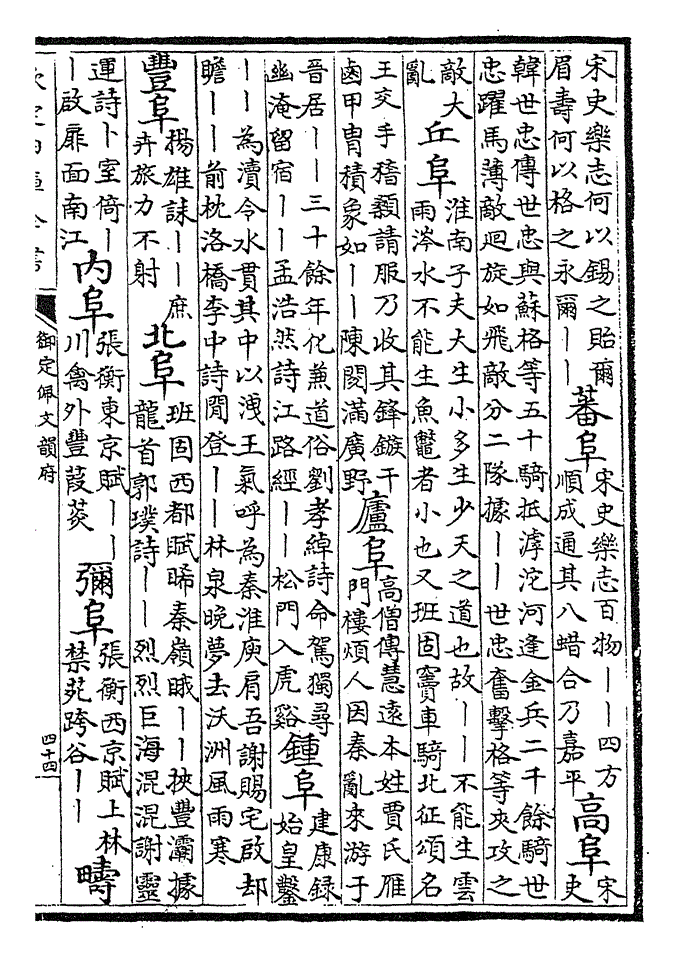 宋史樂志何以錫之貽爾
眉壽何以格之永爾丨丨
蕃阜
宋史樂志百物丨丨四方
順成通其八蜡合乃嘉平
高阜
宋
史
韓世忠傳世忠與蘇格等五十騎抵滹沱河逢金兵二千餘騎世
忠躍馬薄敵迴旋如飛敵分二隊據丨丨世忠奮擊格等夾攻之
敵大
亂
丘阜
淮南子夫大生小多生少天之道也故丨丨不能生雲
雨涔水不能生魚鼈者小也又班固竇車騎北征頌名
王交手稽顙請服乃收其鋒鏃干
鹵甲冑積象如丨丨陳閱滿廣野
廬阜
高僧傳慧遠本姓賈氏雁
門樓煩人因秦亂來游于
晉居丨丨三十餘年化兼道俗劉孝綽詩命駕獨尋
幽淹留宿丨丨孟浩然詩江路經丨丨松門入虎谿
鍾阜
建康録
始皇鑿
丨丨為瀆令水貫其中以洩王氣呼為秦淮庾肩吾謝賜宅啟却
瞻丨丨前枕洛橋李中詩閒登丨丨林泉晚夢去沃洲風雨寒
豐阜
揚雄誄丨丨庶
卉旅力不射
北阜
班固西都賦睎秦嶺睋丨丨挾豐灞據
龍首郭璞詩丨丨烈烈巨海混混謝靈
運詩卜室倚丨
丨啟扉面南江
内阜
張衡東京賦丨丨
川禽外豐葭菼
彌阜
張衡西京賦上林
禁苑跨谷丨丨
疇
御定佩文韻府
四十四